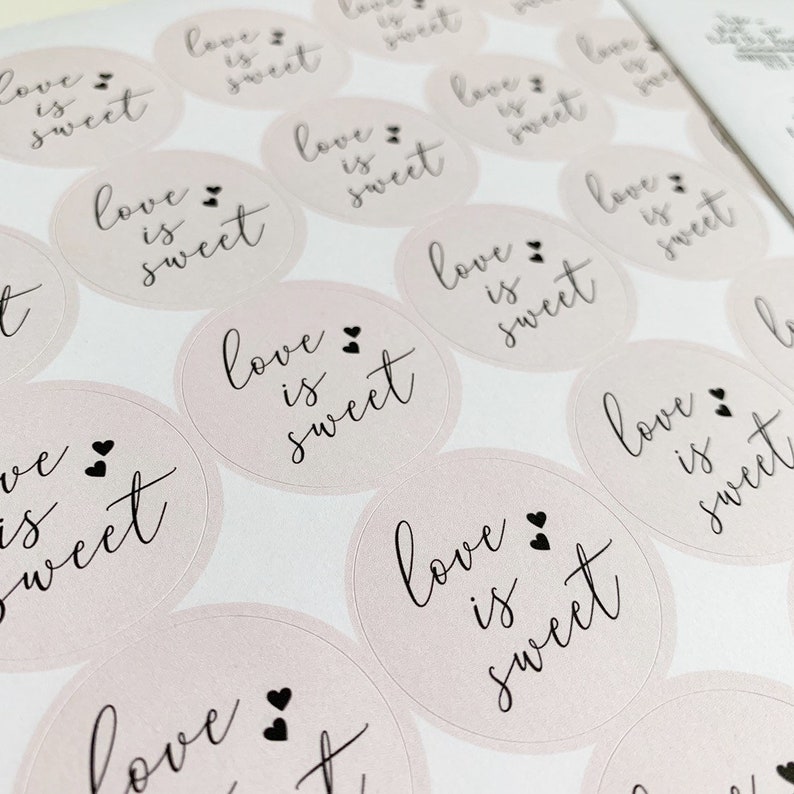 love
is
sweet
love
is
sweet
love
is
sweet
love
is
sweet
love
is
sweet
love
is
sweet
love
is
sweet
love
is
sweet
love
is
sweet
love
is
sweet
love
is
sweet
love
is
sweet
ve
is
weet
love
is